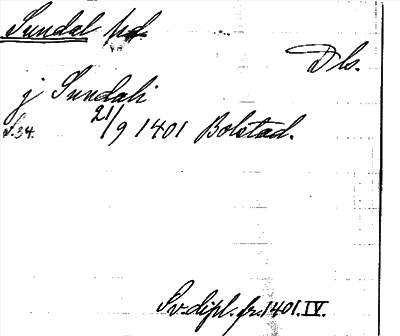 Sundal hd
Dls.
j Sundali
21/9 1401 Bolstad.
S.34.
Sv.dipl. fr. 1401.IV.